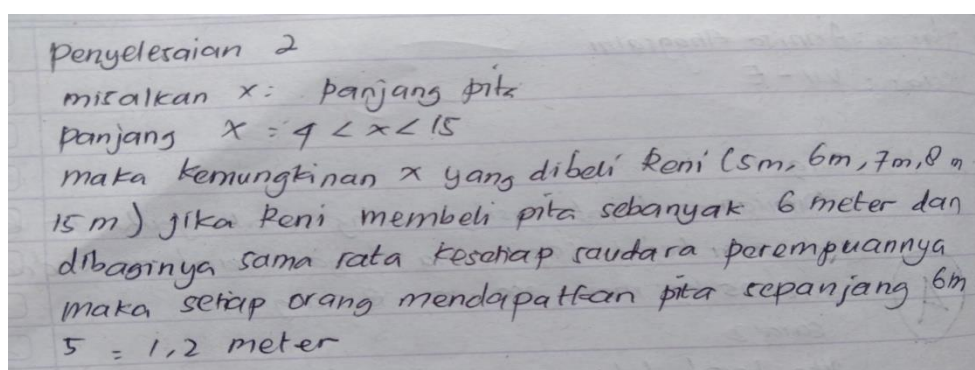 Penyelesaian 2
misalkan x = panjang pita
panjang x = 4 < x < 15
maka kemungkinan x yang dibeli Reni (5m, 6m, 7m, 8 m
15 m) jika Reni membeli pita sebanyak 6 meter dan
dibaginya sama rata kesetiap saudara perempuannya
maka setiap orang mendapatkan pita sepanjang 6m
5 = 1,2 meter